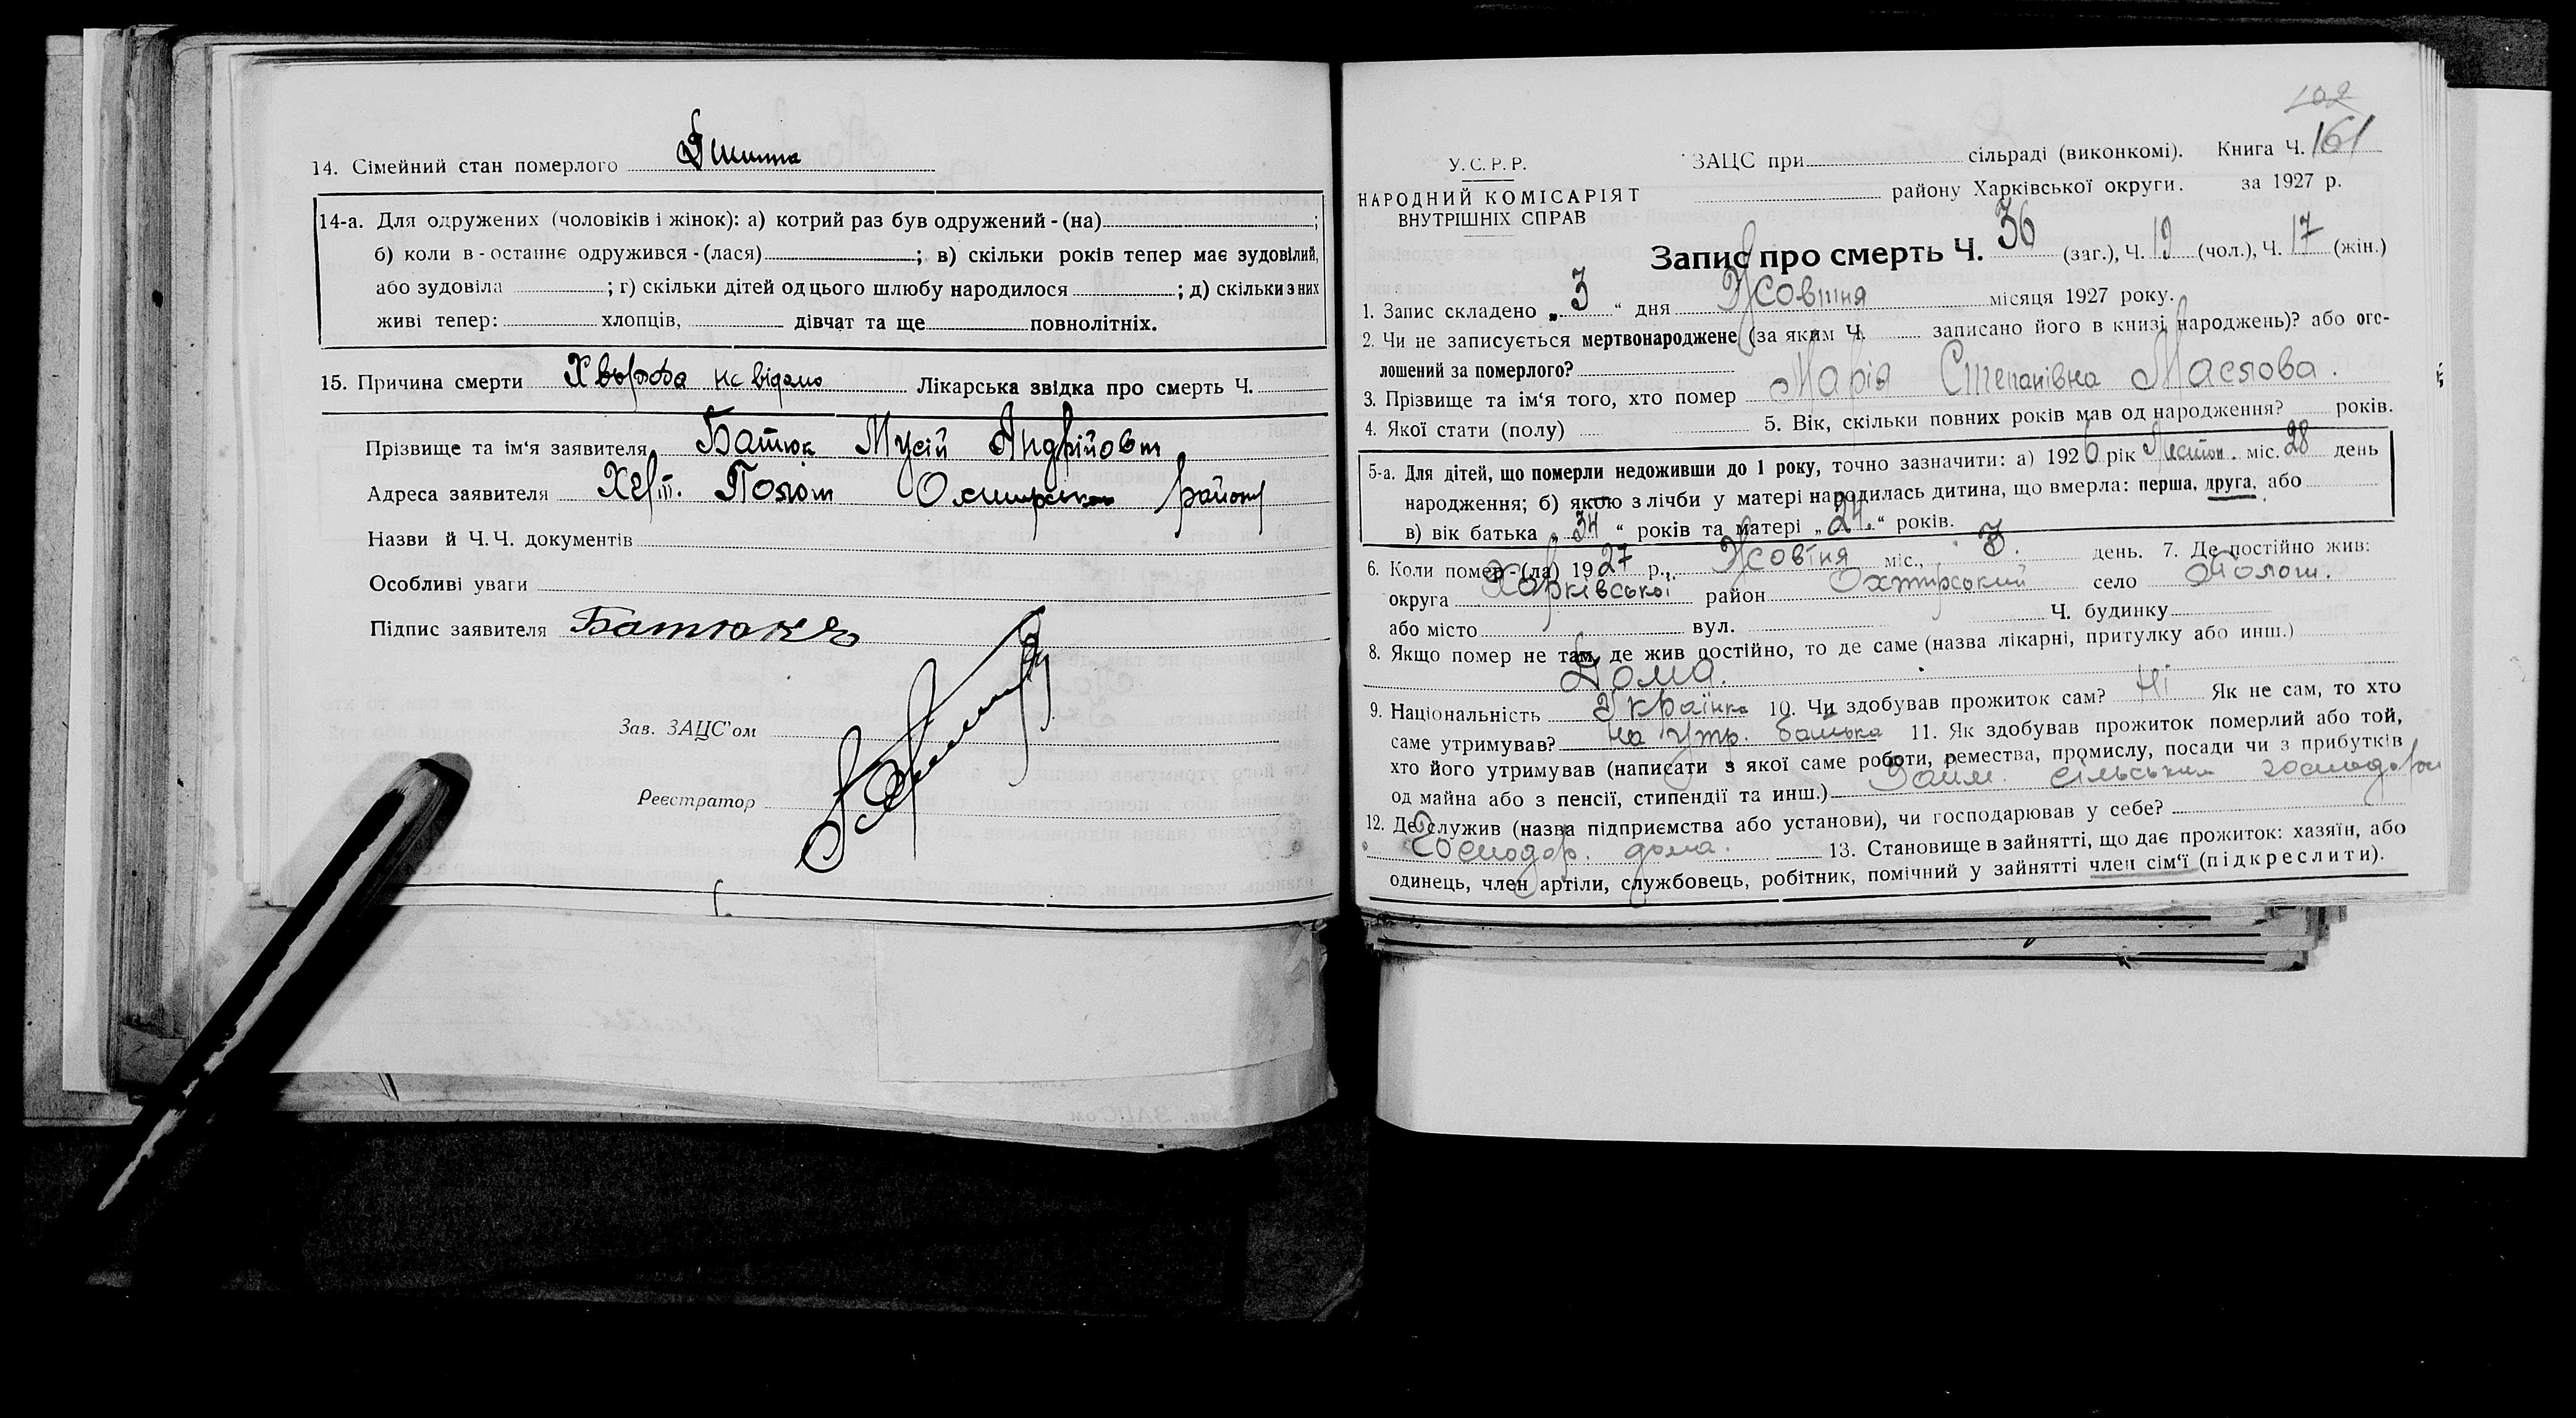 14. Сімейний стан померлого
14-а. Для одружених (чоловіків і жінок): а) котрий раз був одружений - (на) ;
б) коли в - останнє одружився - (лася) ; в) скільки років тепер має зудовілий,
або зудовіла ; г) скільки дітей од цього шлюбу народилося ; д) скільки з них
живі тепер: хлопців, дівчат та ще повнолітніх.
15. Причина смерти Хвороба не відомо Лікарська звідка про смерть Ч.
Прізвище та ім'я заявителя Батюк Мусій Андрійович
Адреса заявителя Хут. Полот Охтирськ району
Назви й Ч.Ч. документів
Особливі уваги
Підпис заявителя Батюк
Зав. ЗАЦС'ом
Реєстратор
102
У.С.Р.Р.
НАРОДНИЙ КОМІСАРІЯТ
ВНУТРІШНІХ СПРАВ
ЗАЦС при сільраді (виконкомі). Книга Ч. 161
району Харківської округи. за 1927 р.
Запис про смерть Ч. 36 (заг.), Ч. 19 (чол.), Ч. 17 (жін.)
1. Запис складено „ 3 “ дня Жовтня місяця 1927 року.
2. Чи не записується мертвонароджене (за яким Ч. записано його в книзі народжень)? або ого-
лошений за померлого?
3. Прізвище та ім'я того, хто помер Марія Степанівна Маслова.
4. Якої стати (полу) 5. Вік, скільки повних років мав од народження? років.
5-а. Для дітей, що померли недоживши до 1 року, точно зазначити: а) 1926 рік Листоп. міс. 28 день
народження; б) якою з лічби у матері народилась дитина, що вмерла: перша, друга, або
в) вік батька „ 34 “ років та матері „ 24. “ років.
6. Коли помер - (ла) 1927 р., Жовтня міс., 3. день. 7. Де постійно жив:
округа Харківської район Охтирський село Полот.
або місто вул. Ч. будинку
8. Якщо помер не там, де жив постійно, то де саме (назва лікарні, притулку або инш.)
Дома.
9. Національність Українка 10. Чи здобував прожиток сам? Ні Як не сам, то хто
саме утримував? на утр. батька 11. Як здобував прожиток померлий або той,
хто його утримував (написати з якої саме роботи, ремества, промислу, посади чи з прибутків
од майна або з пенсії, стипендії та инш.) Займ. сільським господар
12. Де служив (назва підприємства або установи), чи господарював у себе?
Господар. дома. 13. Становище в зайнятті, що дає прожиток: хазяїн, або
одинець, член артіли, службовець, робітник, помічний у зайнятті член сім'ї (підкреслити).